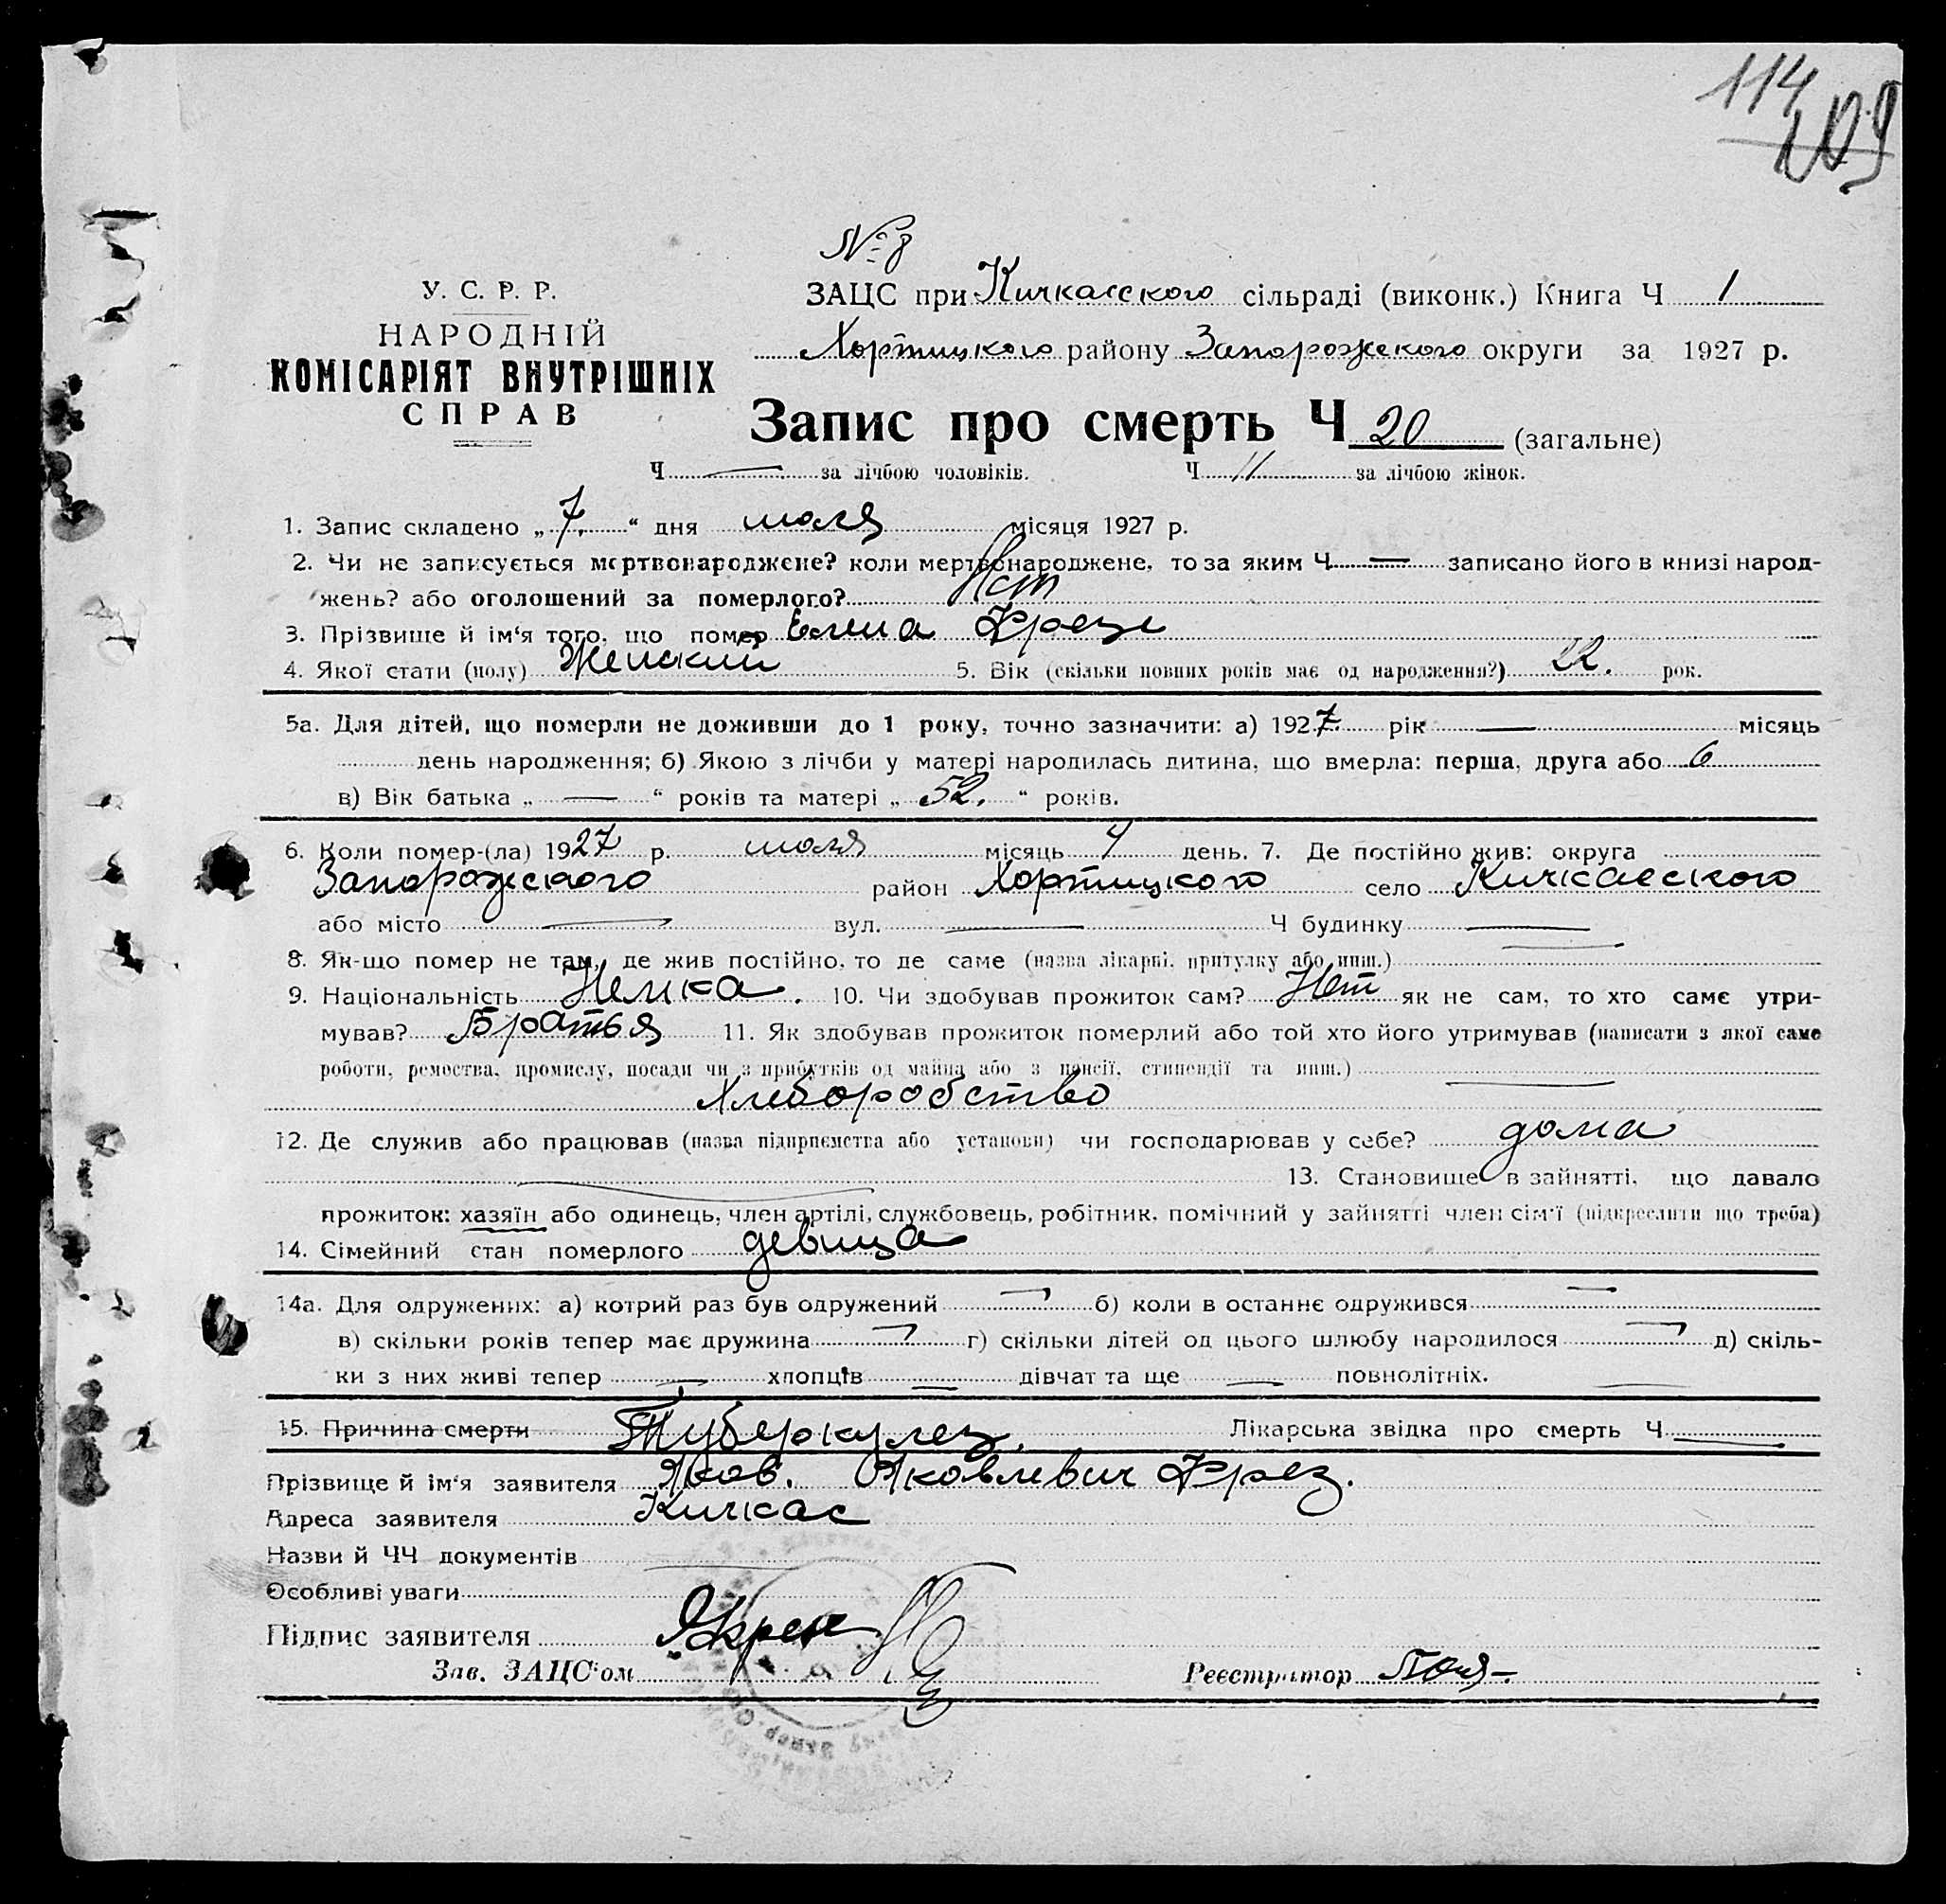 114
109
№ 8
У. С. Р. Р.
НАРОДНІЙ
КОМІСАРІЯТ ВНУТРІШНІХ
СПРАВ
ЗАЦС при Кичкасского сільраді (виконк.) Книга Ч 1
Хортицкого району Запорожского округи за 1927 р.
Запис про смерть Ч 20 (загальне)
Ч — за лічбою чоловіків. Ч 11 за лічбою жінок.
1. Запис складено „ 7. “ дня июля місяця 1927 р.
2. Чи не записується мертвонароджене? коли мертвонароджене, то за яким Ч — записано його в книзі народ-
жень? або оголошений за померлого? Нет
3. Прізвище й ім‘я того, що помер Елена Фрезе
4. Якої стати (полу) Женский 5. Вік (скільки повних років має од народження?) 22. рок.
5а. Для дітей, що померли не доживши до 1 року, точно зазначити: а) 1927. рік — місяць
день народження; б) Якою з лічби у матері народилась дитина, що вмерла: перша, друга або 6
в) Вік батька „ — “ років та матері „ 52. “ років.
6. Коли помер-(ла) 1927 р. июля місяць 4 день. 7. Де постійно жив: округа
Запорожского район Хортицкого село Кичкасского
або місто — вул. — Ч будинку —
8. Як-що помер не там, де жив постійно, то де саме (назва лікарні, притулку або инш.) —
9. Національність Немка. 10. Чи здобував прожиток сам? Нет як не сам, то хто саме утри-
мував? Братья 11. Як здобував прожиток померлий або той хто його утримував (написати з якої саме
роботи, ремества, промислу, посади чи з прибутків од майна або з пенсії, стипендії та инш.) —
Хлеборобство
12. Де служив або працював (назва підприємства або установи) чи господарював у себе? дома
— 13. Становище в зайнятті, що давало
прожиток: хазяїн або одинець, член артілі, службовець, робітник, помічний у зайнятті член сім‘ї (підкреслити що треба)
14. Сімейний стан померлого девица
14а. Для одружених: а) котрий раз був одружений — б) коли в останнє одружився —
в) скільки років тепер має дружина — г) скільки дітей од цього шлюбу народилося — д) скіль-
ки з них живі тепер — хлопців — дівчат та ще — повнолітніх. —
15. Причина смерти Туберкулез. Лікарська звідка про смерть Ч —
Прізвище й ім‘я заявителя Яков. Яковлевич Фрез.
Адреса заявителя Кичкас
Назви й ЧЧ документів —
Особливі уваги
Підпис заявителя ЯФрезе
Зав. ЗАЦС‘ом
Реєстратор